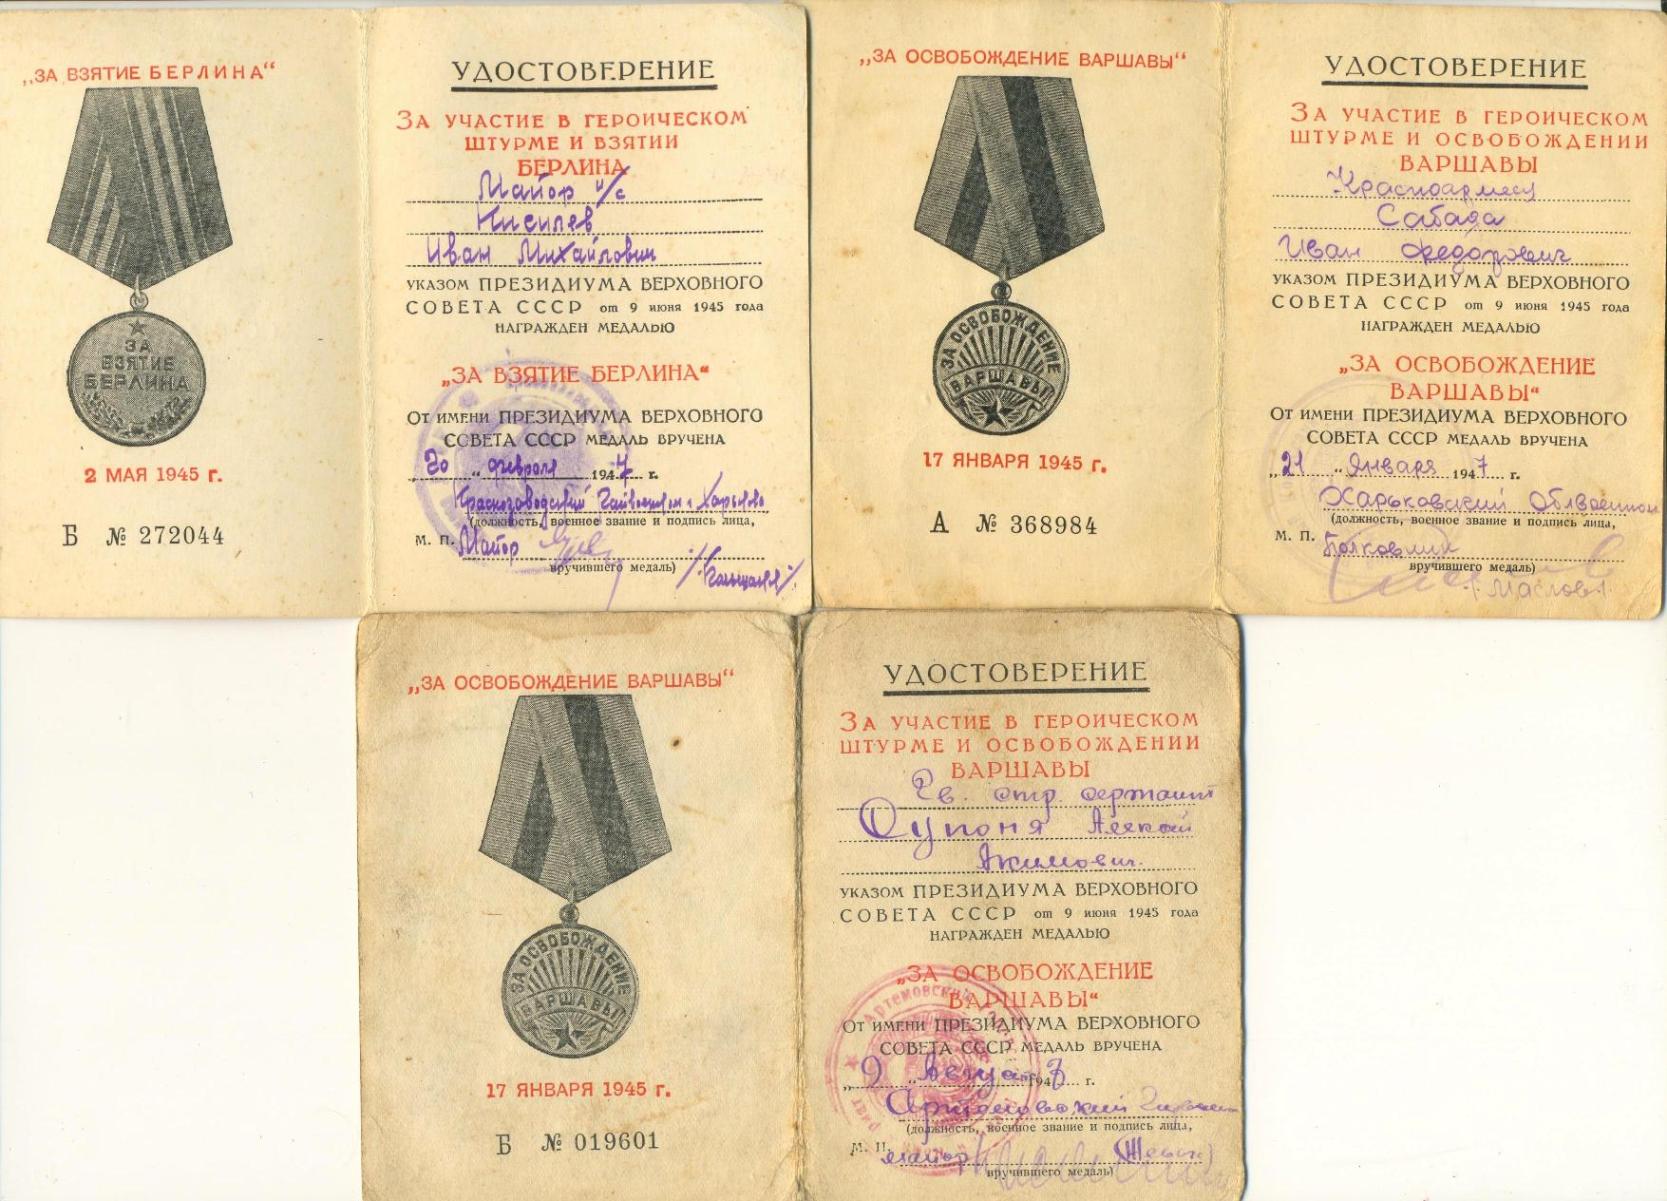 „ЗА ВЗЯТИЕ БЕРЛИНА“
ЗА
ВЗЯТИЕ
БЕРЛИНА
2 МАЯ 1945 г.
Б № 272044
УДОСТОВЕРЕНИЕ
ЗА УЧАСТИЕ В ГЕРОИЧЕСКОМ
ШТУРМЕ И ВЗЯТИИ
БЕРЛИНА
Майор и/с
Кисилев
Иван Михайлович
УКАЗОМ ПРЕЗИДИУМА ВЕРХОВНОГО
СОВЕТА СССР от 9 июня 1945 года
НАГРАЖДЕН МЕДАЛЬЮ
„ЗА ВЗЯТИЕ БЕРЛИНА“
ОТ ИМЕНИ ПРЕЗИДИУМА ВЕРХОВНОГО
СОВЕТА СССР МЕДАЛЬ ВРУЧЕНА
„20 “ февраля 1947 г.
Краснозаводский г. Харьково
(должность, военное звание и подпись лица,
М. П. Майор
вручившего медаль)
„ЗА ОСВОБОЖДЕНИЕ ВАРШАВЫ“
ЗА ОСВОБОЖДЕНИЕ
ВАРШАВЫ
17 ЯНВАРЯ 1945 г.
А № 368984
УДОСТОВЕРЕНИЕ
ЗА УЧАСТИЕ В ГЕРОИЧЕСКОМ
ШТУРМЕ И ОСВОБОЖДЕНИИ
ВАРШАВЫ
Красноармеец
Сабада
Иван Федорович
УКАЗОМ ПРЕЗИДИУМА ВЕРХОВНОГО
СОВЕТА СССР от 9 июня 1945 года
НАГРАЖДЕН МЕДАЛЬЮ
„ЗА ОСВОБОЖДЕНИЕ
ВАРШАВЫ“
ОТ ИМЕНИ ПРЕЗИДИУМА ВЕРХОВНОГО
СОВЕТА СССР МЕДАЛЬ ВРУЧЕНА
„21 “ Января 1947 г.
Харьковский Облвоенком
(должность, военное звание и подпись лица,
М. П. Полковник
вручившего медаль)
(Маслов)
„ЗА ОСВОБОЖДЕНИЕ ВАРШАВЫ“
ЗА ОСВОБОЖДЕНИЕ
ВАРШАВЫ
17 ЯНВАРЯ 1945 г.
Б № 019601
УДОСТОВЕРЕНИЕ
ЗА УЧАСТИЕ В ГЕРОИЧЕСКОМ
ШТУРМЕ И ОСВОБОЖДЕНИИ
ВАРШАВЫ
Гв. стр. сержант
Супоня Алексей
Акимович.
УКАЗОМ ПРЕЗИДИУМА ВЕРХОВНОГО
СОВЕТА СССР от 9 июня 1945 года
НАГРАЖДЕН МЕДАЛЬЮ
„ЗА ОСВОБОЖДЕНИЕ
ВАРШАВЫ“
ОТ ИМЕНИ ПРЕЗИДИУМА ВЕРХОВНОГО
СОВЕТА СССР МЕДАЛЬ ВРУЧЕНА
„9 “ Августа 194 г.
Артемовский
(должность, военное звание и подпись лица,
М. П. майор
вручившего медаль)